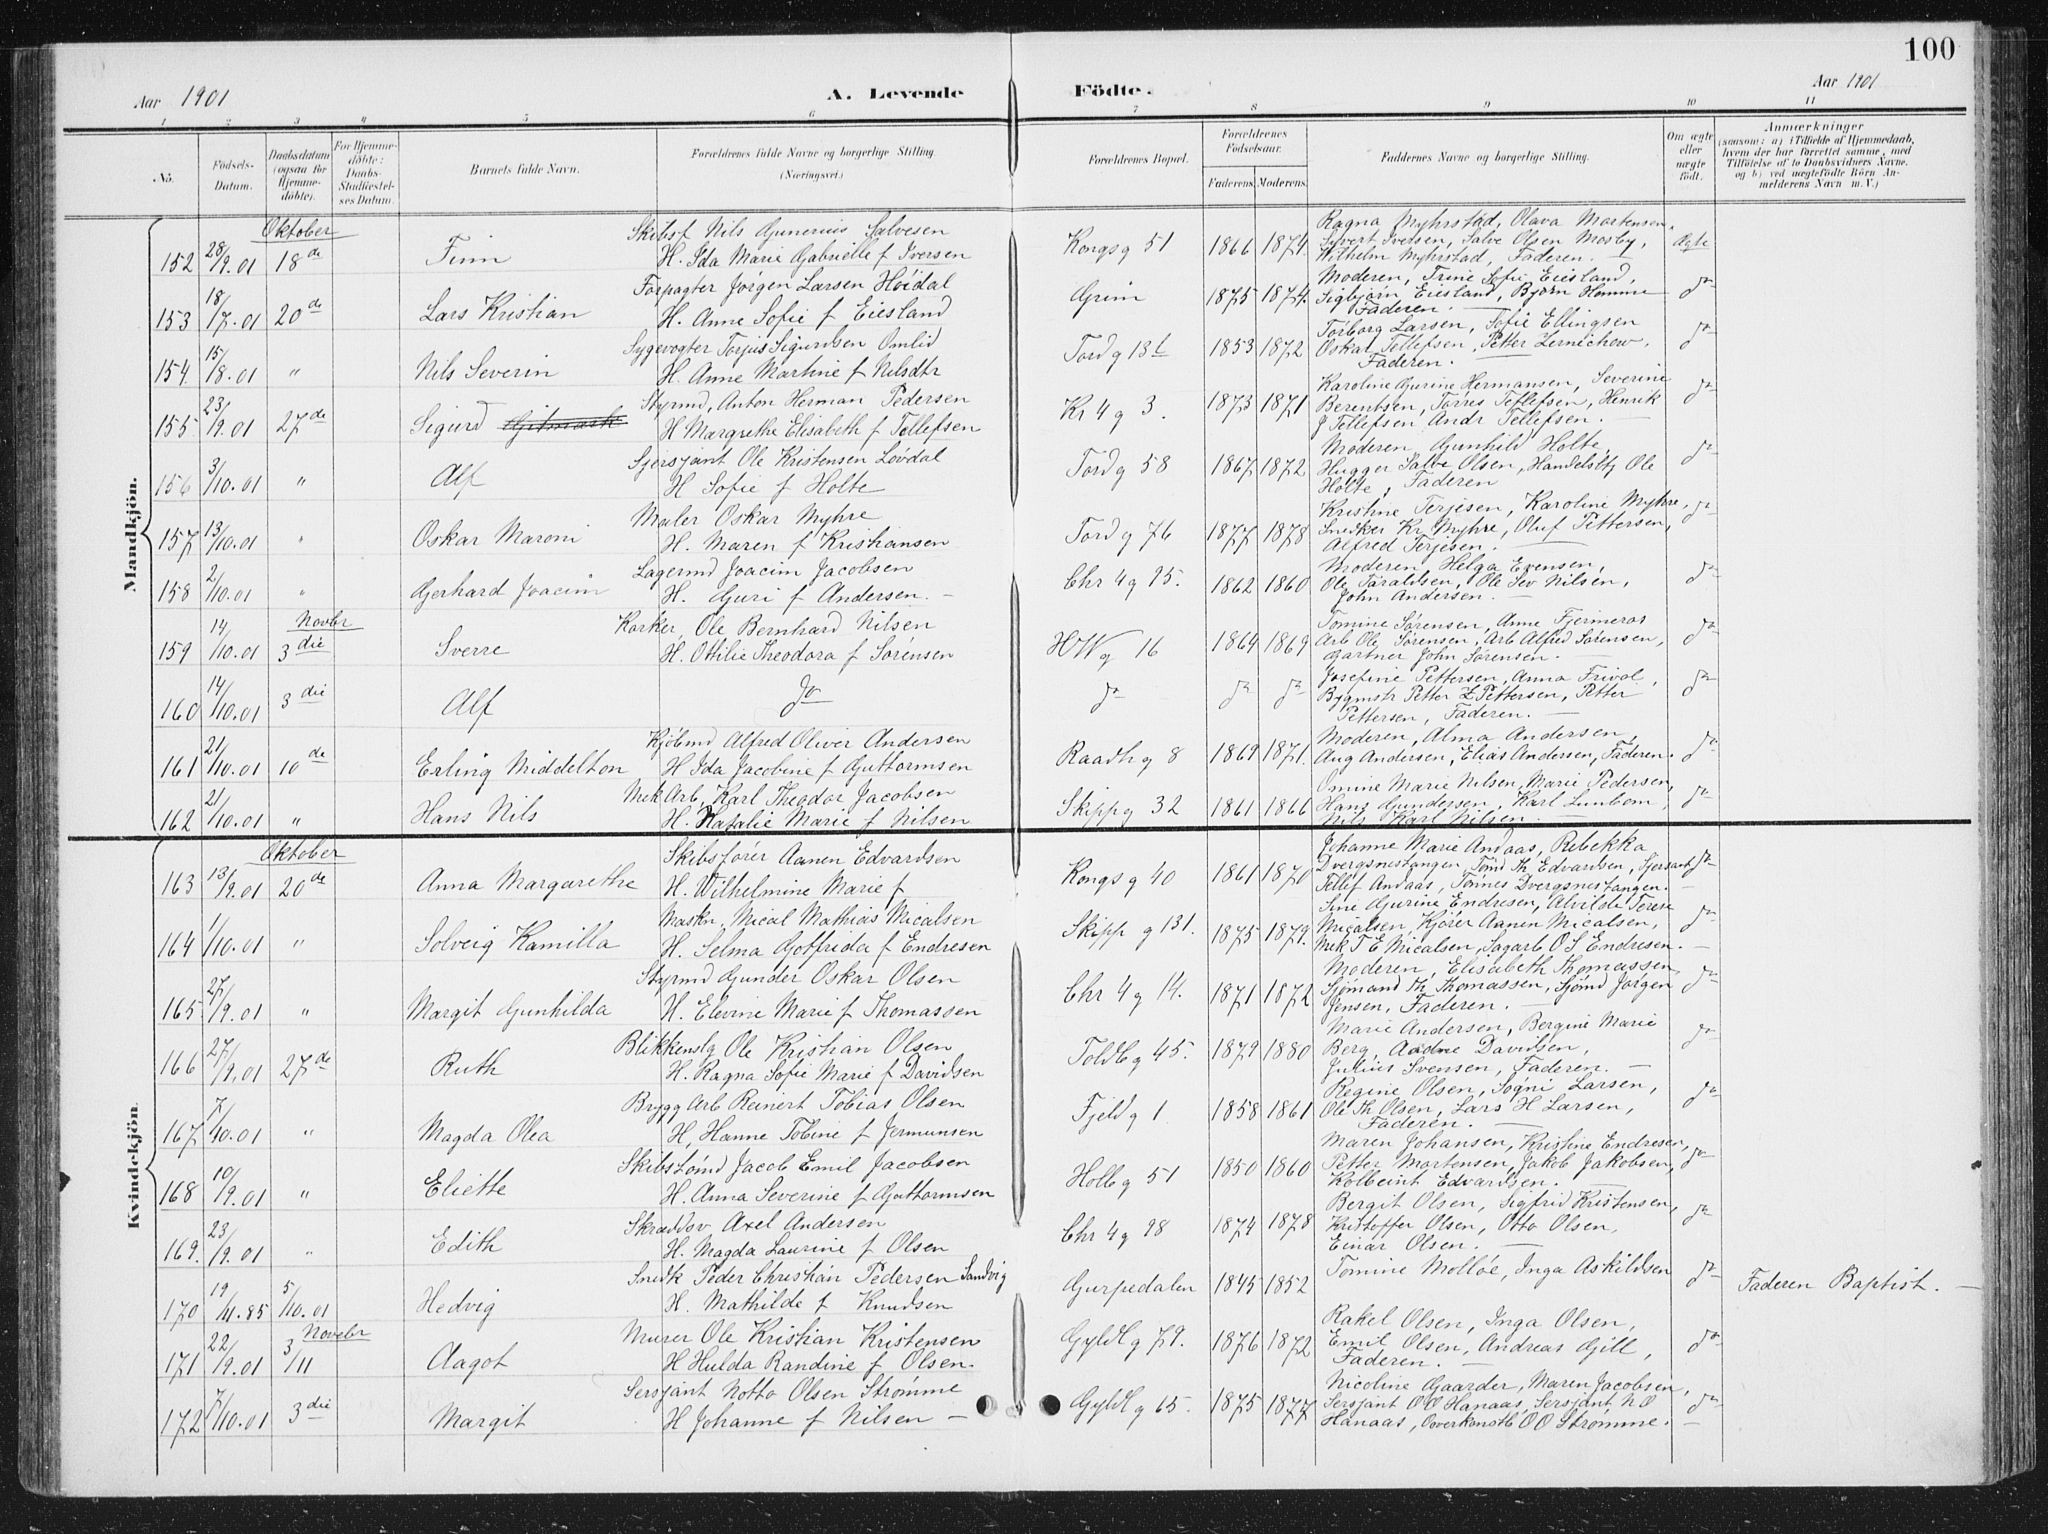 100
Aar 1901 A. Levende Födte. Aar 1901
1 2 3 4 5 6 7 8 9 10 11
No. Födsels-Datum. Daabsdatum (ogsaa for Hjemmedöbte). For Hjemmedöbte: Daabs-Stadfæstelses Datum. Barnets fulde Navn. Forældrenes fulde Navne og borgerlige Stilling. (Næringsvei.) Forældrenes Bopæl. Forældrenes Födselsaar. Faderens. Moderens. Faddernes Navne og borgerlige Stilling. Om ægte eller uægte födt. Anmærkninger (saasom: a) i Tilfælde af Hjemmedaab, hvem der har forrettet samme, med Tilföielse af to Daabsvidners Navne. og b) ved uægtefödte Börn Anmelderens Navn m. V.)
Mandkjön.
Oktober
152 28/9.01 18de Finn Skibsf Nils Gunerius Salvesen Kongsg 51 1866 1874. Ragna Myhrstad, Olava Mortensen, Ægte
H. Ida Marie Gabrielle f Iversen Syvert Ivetsen, Salve Olsen Mosby,
Wilhelm Myhrstad, Faderen.
153 18/7.01 20de Lars Kristian Forpagter Jørgen Larsen Høidal Grim 1875 1874. Moderen, Trine Sofie Eiesland, do
H. Anne Sofie f Eiesland Sigbjørn Eiesland, Bjørn Homme
Faderen.
154. 15/8.01 " Nils Severin Sygevogter Torjus Sigurdsen Omlid Tordg 13b 1853 1872 Torborg Larsen, Sofie Ellingsen do
H. Anne Martine f Nilsdtr Oskar Tellefsen, Petter Zernichow,
Faderen.
155. 23/9.01 27de Sigurd Styrmd, Anton Herman Pedersen Kr 4 g 3. 1873 1871 Karoline Gurine Hermansen, Severine do
H Margrethe Elisabeth f Tellefsen Berentsen, Torres Tellefsen, Henrik
J Tellefsen Andr Tellefsen.
156 3/10.01 " Alf Sjersjant Ole Kristensen Løvdal Tordg 58 1867 1872 Moderen, Gunhild Holte do
H Sofie f Holte Hugger Salve Olsen, Handelsbtj Ole
Holte, Faderen
157 13/10.01 " Oskar Maroni Maler Oskar Myhre Tordg 76 1877 1878 Kristine Terjesen, Karoline Myhre, do
H. Maren f Kristiansen Snedker Kr Myhre, Oluf Pettersen,
Alfred Terjesen.
158 2/10.01 " Gerhard Joacim Lagermd Joacim Jacobsen Chr 4 g 95. 1862 1860 Moderen, Helga Evensen, do
H. Guri f Andersen. Ole Taraldsen, Ole Sev Nilsen,
John Andersen.
Novbr
159 14/10.01 3die Sverre Korker, Ole Bernhard Nilsen HWg 16 1864 1869 Tomine Sørensen, Anne Fjermeros do
H. Ottilie Theodora f Sørensen Arb Ole Sørensen, Arb Alfred Sørensen,
Gartner John Sørensen.
160 14/10.01 3die Alf do do do do Josefine Pettersen, Anna Frivol, do
Bygmstr Petter Z Pettersen, Petter
Pettersen, Faderen.
161 21/10.01 10de Erling Middelton Kjøbmd Alfred Oliver Andersen Raadhg 8 1869 1871. Moderen, Alma Andersen, do
H Ida Jacobine f Guttormsen Aug Andersen, Elias Andersen, Faderen.
162 21/10.01 " Hans Nils Mek Arb, Karl Theodor Jacobsen Skippg 32 1861 1866 Omine Marie Nilsen, Marie Pedersen, do
H. Natalie Marie f Nilsen Hans Gundersen, Karl Lunbom,
Nils Karl Nilsen.
Kvindekjön.
Oktober
163 13/9.01 20de Anna Margarethe Skibsfører Aanen Edvardsen Kongsg 40 1861 1870 Johanne Marie Andaas, Rebekka do
H. Wilhelmine Marie f Dvergsnestangen, Tømd Th Edvardsen, Sjersant
Tellef Andaas, Tønnes Dvergsnestangen.
164 1/10.01 " Solveig Kamilla Maskn, Mical Mathias Micalsen Skipp g 131. 1875 1879. Sine Gurine Endresen, Alvilde Terese do
H. Selma Gotfrida f Endresen Micalsen, Kjører Aanen Micalsen,
Mek T E Micalsen, Sagarb O S Endresen.
165 27/9.01 " Margit Gunhilda Styrmd Gunder Oskar Olsen Chr 4 g 14. 1871 1872 Moderen, Elisabeth Thomassen, do
H. Elevine Marie f Thomassen Sjømand Th Thomassen, Sjømd Jørgen
Jensen, Faderen.
166 27/9.01 27de Ruth Blikkenslg Ole Kristian Olsen Toldbg 45. 1879 1880 Marie Andersen, Bergine Marie do
H. Ragna Sofie Marie f Davidsen Berg, Davidsen,
Julius Svensen, Faderen.
167 7/10.01 " Magda Olea Brygg Arb Reinert Tobias Olsen Fjeldg 1 1858 1861 Regine Olsen, Sogni Larsen, do
H, Hanne Tobine f Jermunsen Ole Th Olsen, Lars H Larsen,
Faderen.
168 10/9.01 " Eliette Skibstømd Jacob Emil Jacobsen Holbg 51 1850 1860 Maren Johansen, Kristine Endresen, do
H. Anna Severine f Guttormsen Petter Mortensen, Jakob Jakobsen,
Kolbeint Edvardsen.
169. 23/9.01 " Edith Skrædsv Axel Andersen Chr 4 g 98 1874 1878 Bergit Olsen, Sigfrid Kristensen, do
H. Magda Laurine f Olsen Kristoffer Olsen, Otto Olsen,
Einar Olsen.
170 19/11.85 5/10.01 Hedvig Snedk Peder Christian Pedersen Sandvig Gurpedalen 1845 1852 Tomine Molløe, Inga Askildsen do Faderen Baptist.
H. Mathilde f Knudsen
Novebr
171 22/9.01 3/11 Aagot Murer Ole Kristian Kristensen Gyldlg 79. 1876 1872 Rakel Olsen, Inga Olsen, do
H Hulda Randine f Olsen. Emil Olsen, Andreas Gill,
Faderen.
172 7/10.01 3die Margit Sersjant Notto Olsen Strømme Gyldlg 65. 1875 1877 Nicoline Gaarder, Maren Jacobsen, do
H Johanne f Nilsen Sersjant O O Hanaas, Sersjant N O
Hanaas, Ooverkonstb O O Strømme.